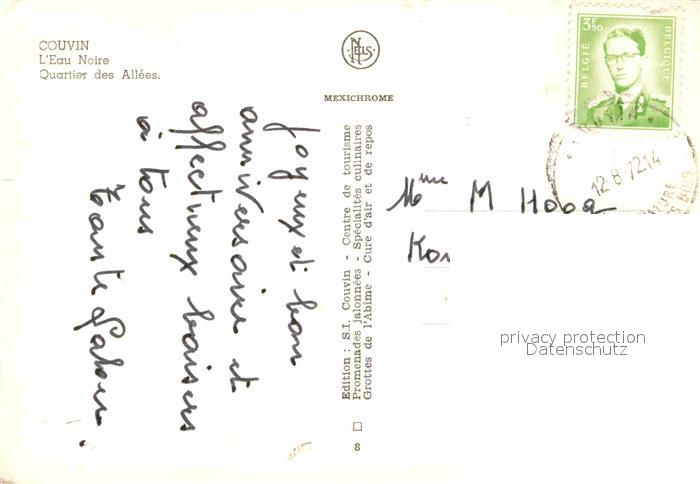 COUVIN
L'Eau Noire
Quartier des Allées.
NELS
MEXICHROME
BELGIË BELGIQUE
3F50
12-8-72 14
Joyeux et bon
anniversaire et
affectueux baisers
à tous
Tante
Edition : S.I. Couvin - Centre de tourisme
Promenades jalonnées - Spécialités culinaires
Grottes de l'Abîme - Cure d'air et de repos
8
Mme M
privacy protection
Datenschutz